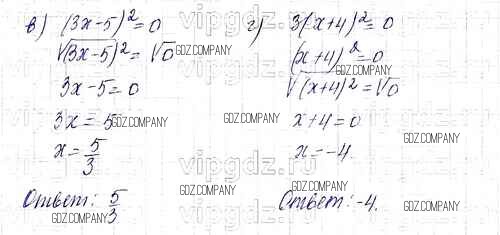 в) (3x-5)²=0
√(3x-5)²=√0
3x-5=0
3x=5
x=5/3
Ответ: 5/3
г) 3(x+4)²=0
(x+4)²=0
√(x+4)²=√0
x+4=0
x=-4.
Ответ: -4.
GDZ.COMPANY
GDZ.COMPANY
GDZ.COMPANY
GDZ.COMPANY
GDZ.COMPANY
GDZ.COMPANY
GDZ.COMPANY
GDZ.COMPANY
GDZ.COMPANY
vipgdz.ru
vipgdz.ru
vipgdz.ru